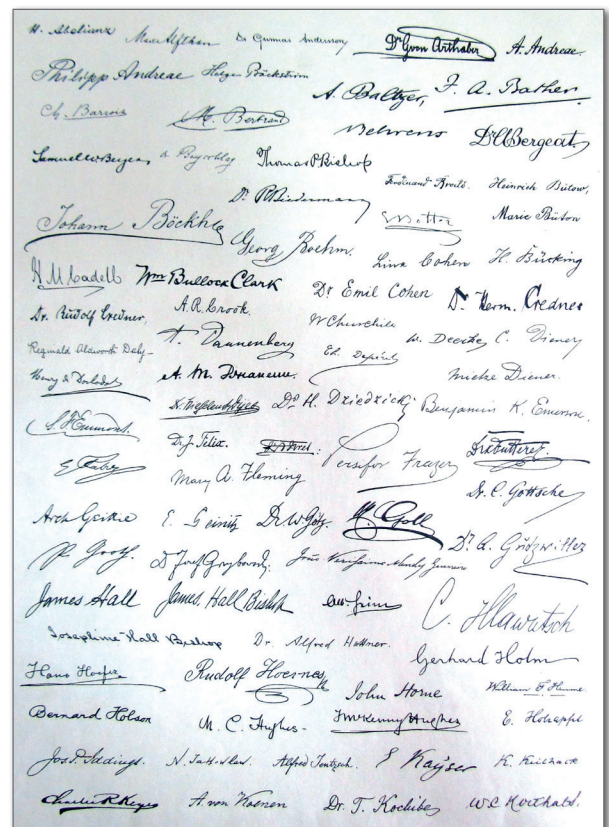 H. Abelianz
Max Alfthan
Dr Gunnar Andersson
Dr Gvon Arthaber
A. Andreae
Philipp Andreae
Helge Bäckström
A. Baltzer,
F. A. Bather
Ch. Barrois
M. Bertrand
Behrens
Dr A Bergeat
Samuel W Beyer
Thomas P Bishop
Ferdinand Broili
Heinrich Bülow,
Dr. P Biedermann
Marie Bütow
Johann Böckh
Georg Boehm.
Lina Cohen
H. Bücking
H. M. Cadell
Wm Bullock Clark
Dr Emil Cohen
Dr. Herm. Credner
Dr. Rudolf Credner,
A. R. Crook.
W Churchill
W. Deecke
C. Diener
Reginald Aldworth Daly
A. Dannenberg
Ch. Depéret
Mietze Diener.
Dr. H. Dziedzicki
Benjamin K. Emerson.
S. F. Emmons.
Dr. J. Felix.
Persifor Frazer
Dr K Futterer.
Mary A. Fleming
Dr. C. Gottsche
Arch Geikie
E. Geinitz
Dr W Götz
H. Goll
Dr. A. Gutzwiller
P. Groth.
D Josef Grzybowski.
James Hall
James Hall Bishop
C. Hlawatsch
Josephine Hall Bishop
Dr. Alfred Hettner.
Gerhard Holm
Hans Hoefer
Rudolf Hoernes
John Horne
William F. Hume
Bernard Hobson
M. C. Hughes
T McKenny Hughes
E. Holzapfel
Jos. P. Iddings.
Alfred Jentzsch.
E Kayser
K. Keilhack
Charles R Keyes
A. von Koenen
Dr. T. Kochibe
W. C. Korthals.